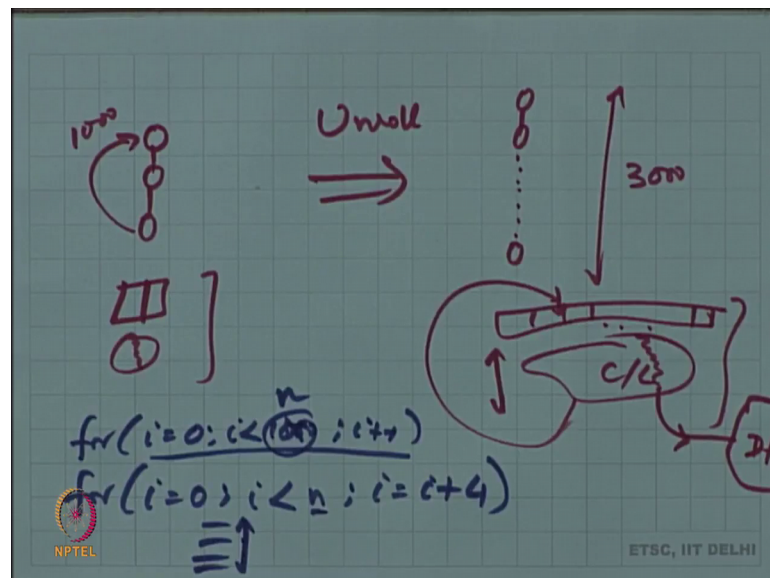 1000
Unroll
3000
C/L
n
for(i=0; i<1000; i++)
for(i=0; i<n; i=i+4)
NPTEL
ETSC, IIT DELHI